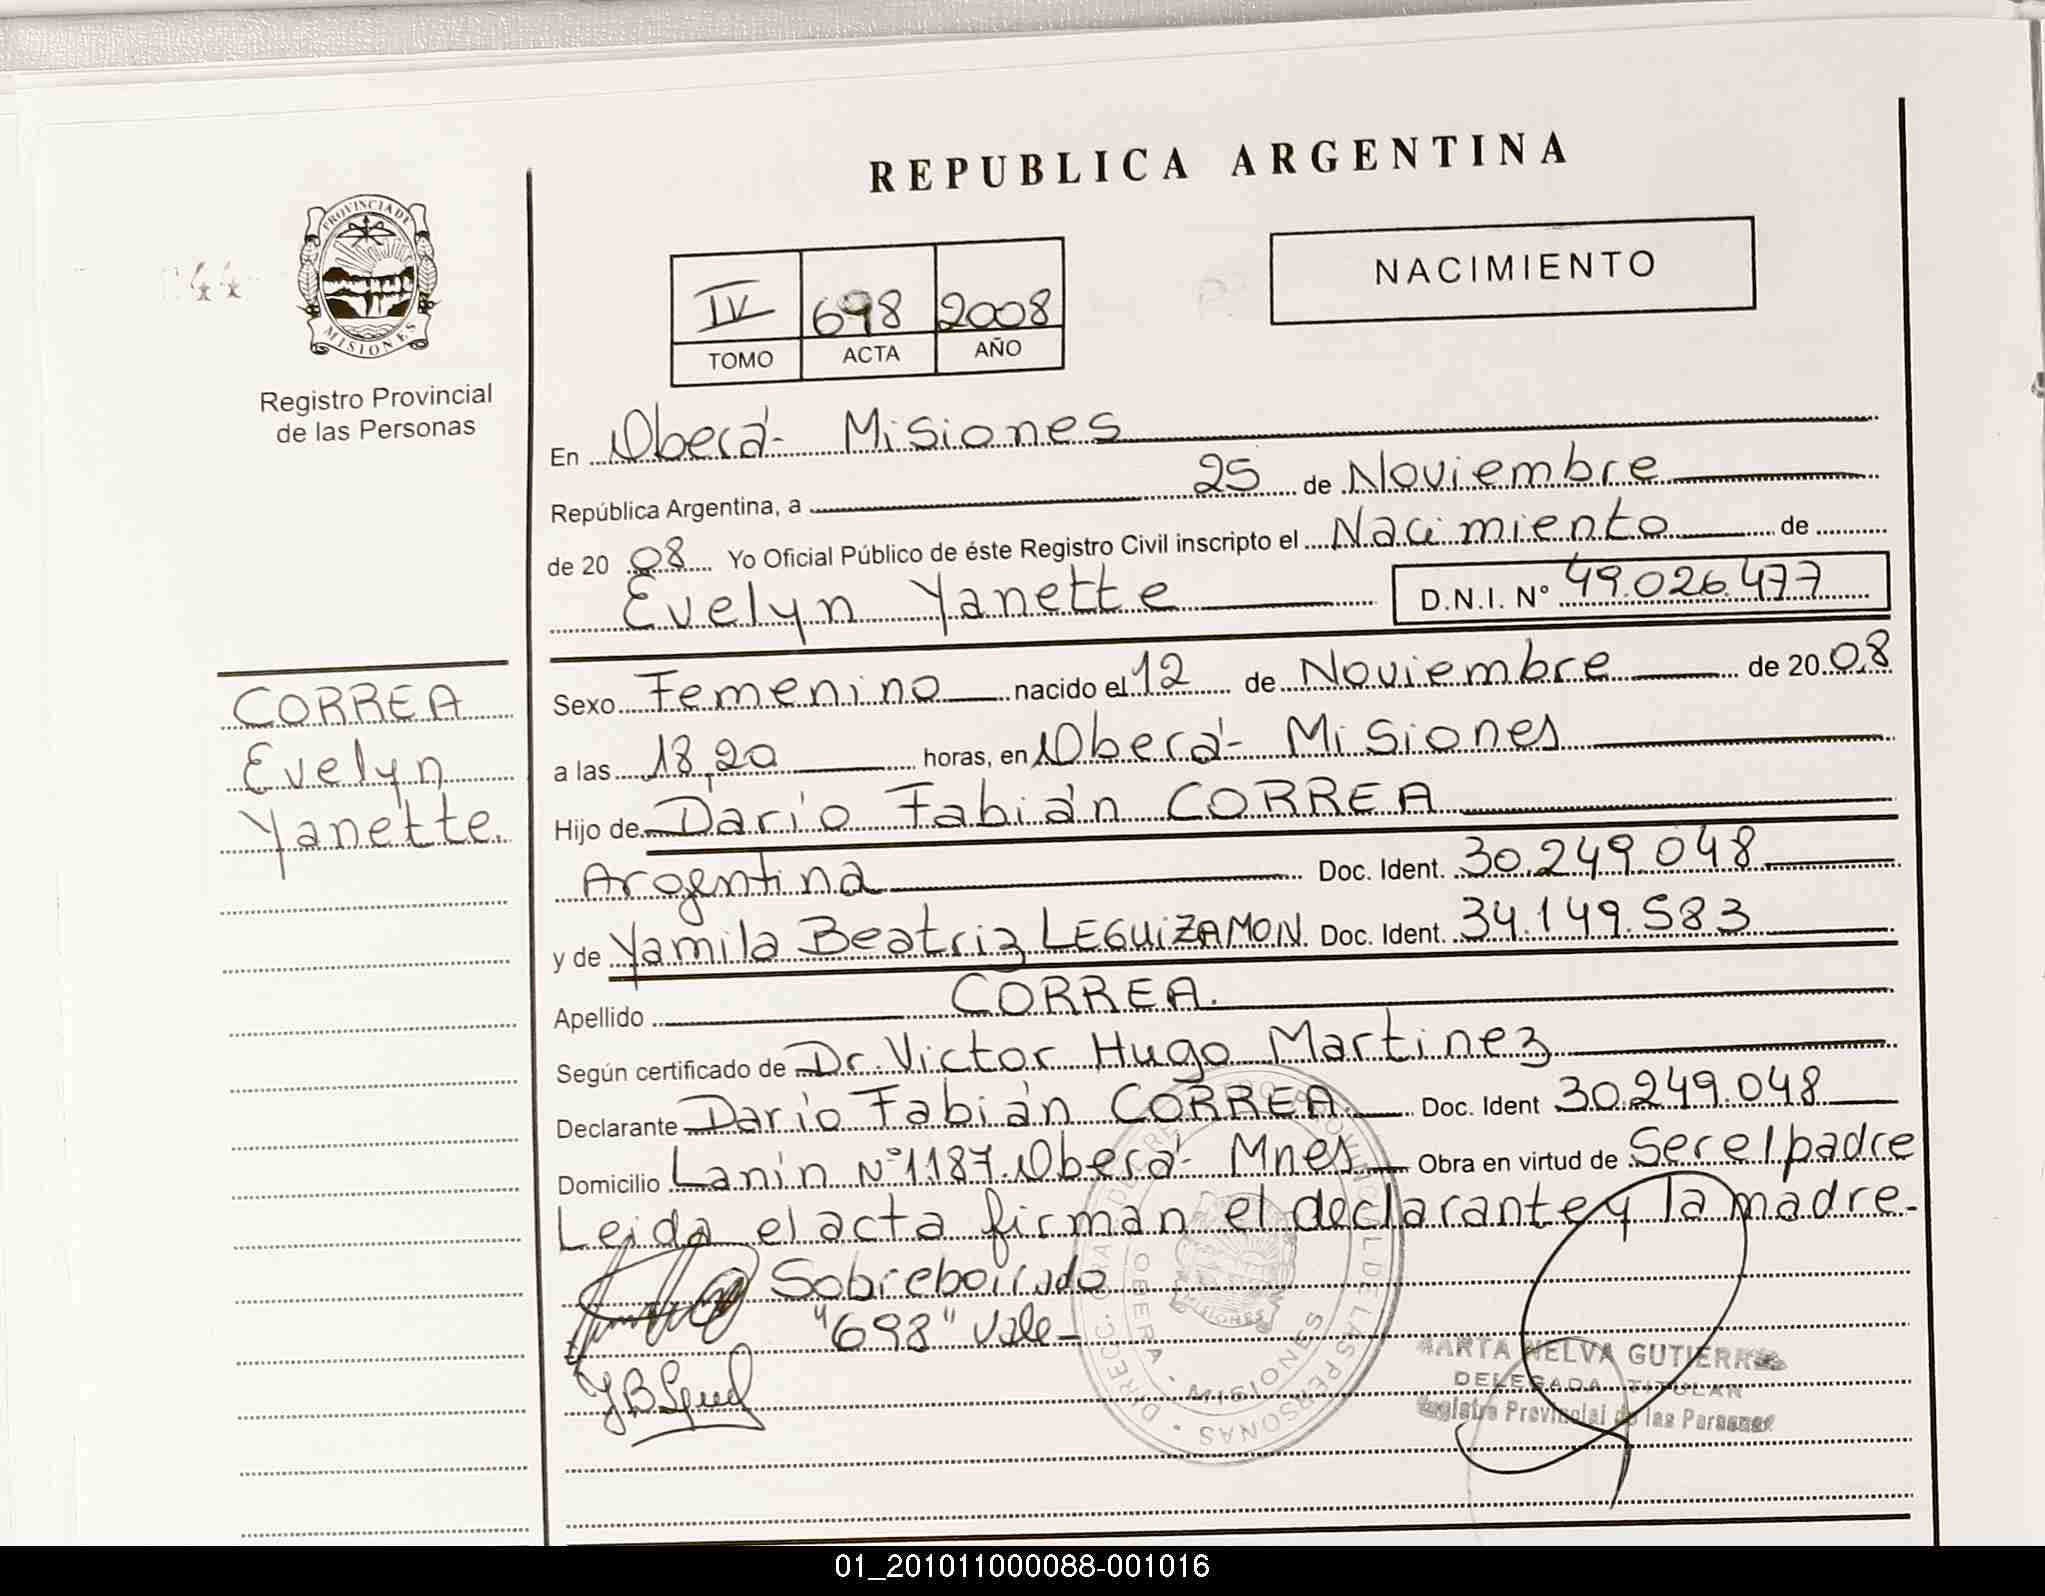 REPUBLICA ARGENTINA
PROVINCIA DE
MISIONES
Registro Provincial
de las Personas
IV 698 2008
TOMO ACTA AÑO
NACIMIENTO
En Oberá - Misiones
República Argentina, a 25 de Noviembre
de 2008 Yo Oficial Público de éste Registro Civil inscripto el Nacimiento de
Evelyn Yanette D.N.I. Nº 49.026.477
CORREA
Evelyn
Yanette.
Sexo Femenino nacido el 12 de Noviembre de 2008
a las 18,20 horas, en Oberá - Misiones
Hijo de Darío Fabián CORREA
Argentina Doc. Ident. 30.249.048
y de Yamila Beatriz LEGUIZAMON. Doc. Ident. 34.149.583
Apellido CORREA.
Según certificado de Dr. Victor Hugo Martinez
Declarante Darío Fabián CORREA. Doc. Ident 30.249.048
Domicilio Lanin Nº 1187. Oberá - Mnes Obra en virtud de Ser el padre
Leida el acta firman el declarante y la madre.
Sobreborrado
"698" Vale -
OBERA - MISIONES
MARTA NELVA GUTIERREZ
DELEGADA TITULAR
Registro Provincial de las Personas
01_201011000088-001016